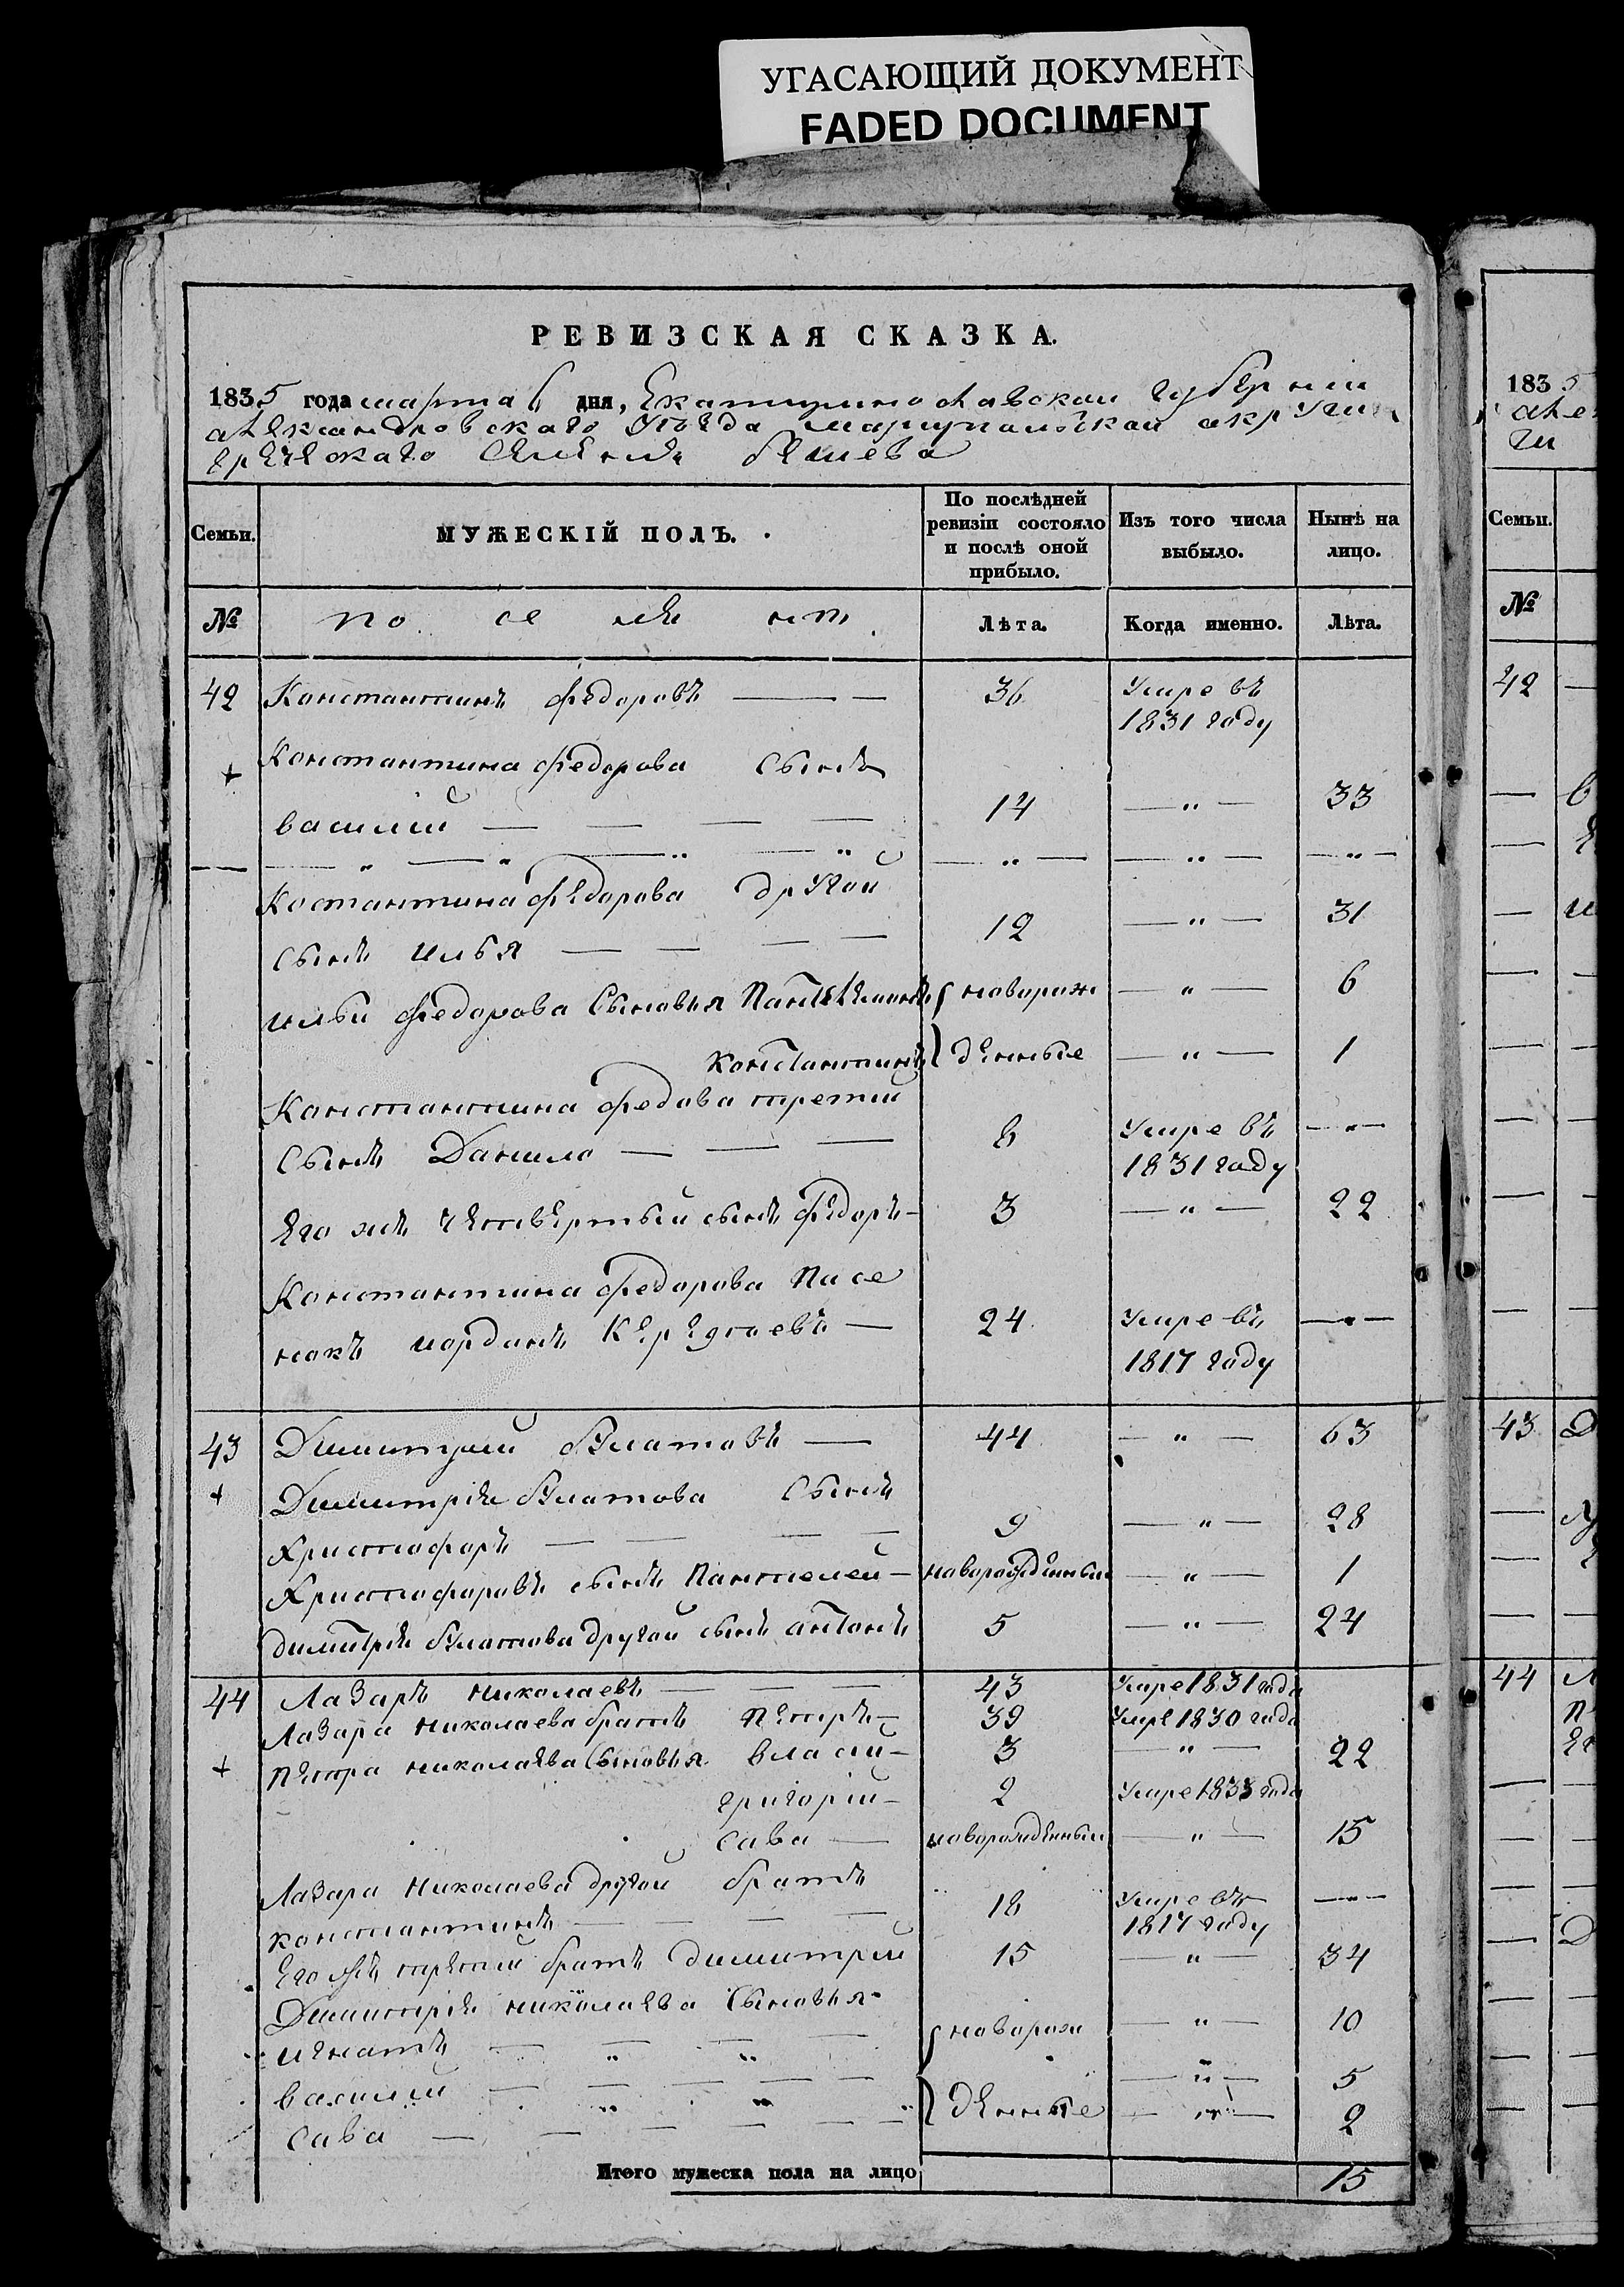 УГАСАЮЩИЙ ДОКУМЕНТ
FADED DOCUMENT
РЕВИЗСКАЯ СКАЗКА.
1835 года марта 6 дня, Екатеринославской губерніи
александровского Уѣзда мариупольской акруги
греческаго селения бешева
Семьи.
МУЖЕСКІЙ ПОЛЪ.
По послѣдней ревизіи состояло и послѣ оной прибыло.
Изъ того числа выбыло.
Нынѣ на лицо.
№ по се ля нт Лѣта. Когда именно. Лѣта.
42 Константинъ федоровъ — — 36 Умре въ
1831 году
+ Константина федорова Сынъ
василий — — — — 14 — " — 33
— — " — " — " — " — " — — " — — " —
Костантина федорова другой
сынъ илья — — — — 12 — " — 31
ильи федорова Сыновья Пантелимонъ новорож — " — 6
константинъ денные — " — 1
Константина федова третий
Сынъ Данило — — — 6 Умре въ — " —
1831 году
Его жъ четвертый сынъ федоръ — 3 — " — 22
Константина федорова пасе
нокъ иорданъ — 24 Умре въ — " —
1817 году
43 Димитрий булатовъ — 44 — " — 63
+ Димитрія булатова Сынъ
Христофоръ — — — — 9 — " — 28
Христофоровъ сынъ Пантелей — новорожденный — " — 1
димитрія булатова другой сынъ антонъ 5 — " — 24
44 Лазаръ николаевъ — — — 43 Умре 1831 года
Лазара николаева братъ петръ — 39 Умре 1830 года
+ петра николаева Сыновья власий — 3 — " — 22
григорий — 2 Умре 1833 года
сава — новорожденный — " — 15
Лазара николаева другой братъ
константинъ — — — — 18 Умре въ — " —
1817 году
Его жъ третий братъ димитрий 15 — " — 34
Димитрія николаева Сыновья
игнатъ — — — — новорож — " — 10
василий — — — — — " — 5
сава — — — — денные — " — 2
Итого мужеска пола на лицо 15
Семьи.
№
42
43
44